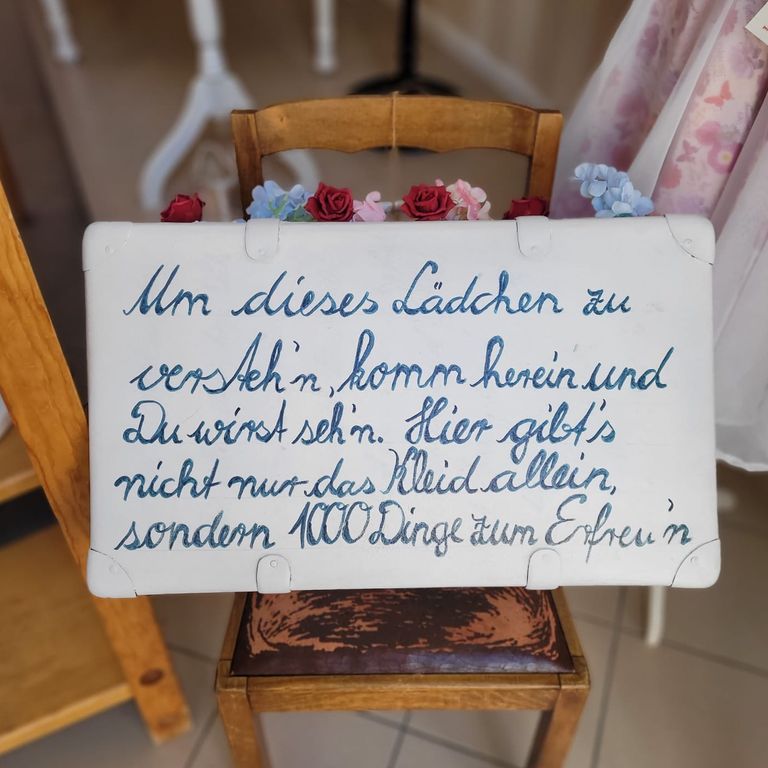 Um dieses Lädchen zu
versteh'n, komm herein und
Du wirst seh'n. Hier gibt's
nicht nur das Kleid allein,
sondern 1000 Dinge zum Erfreu'n